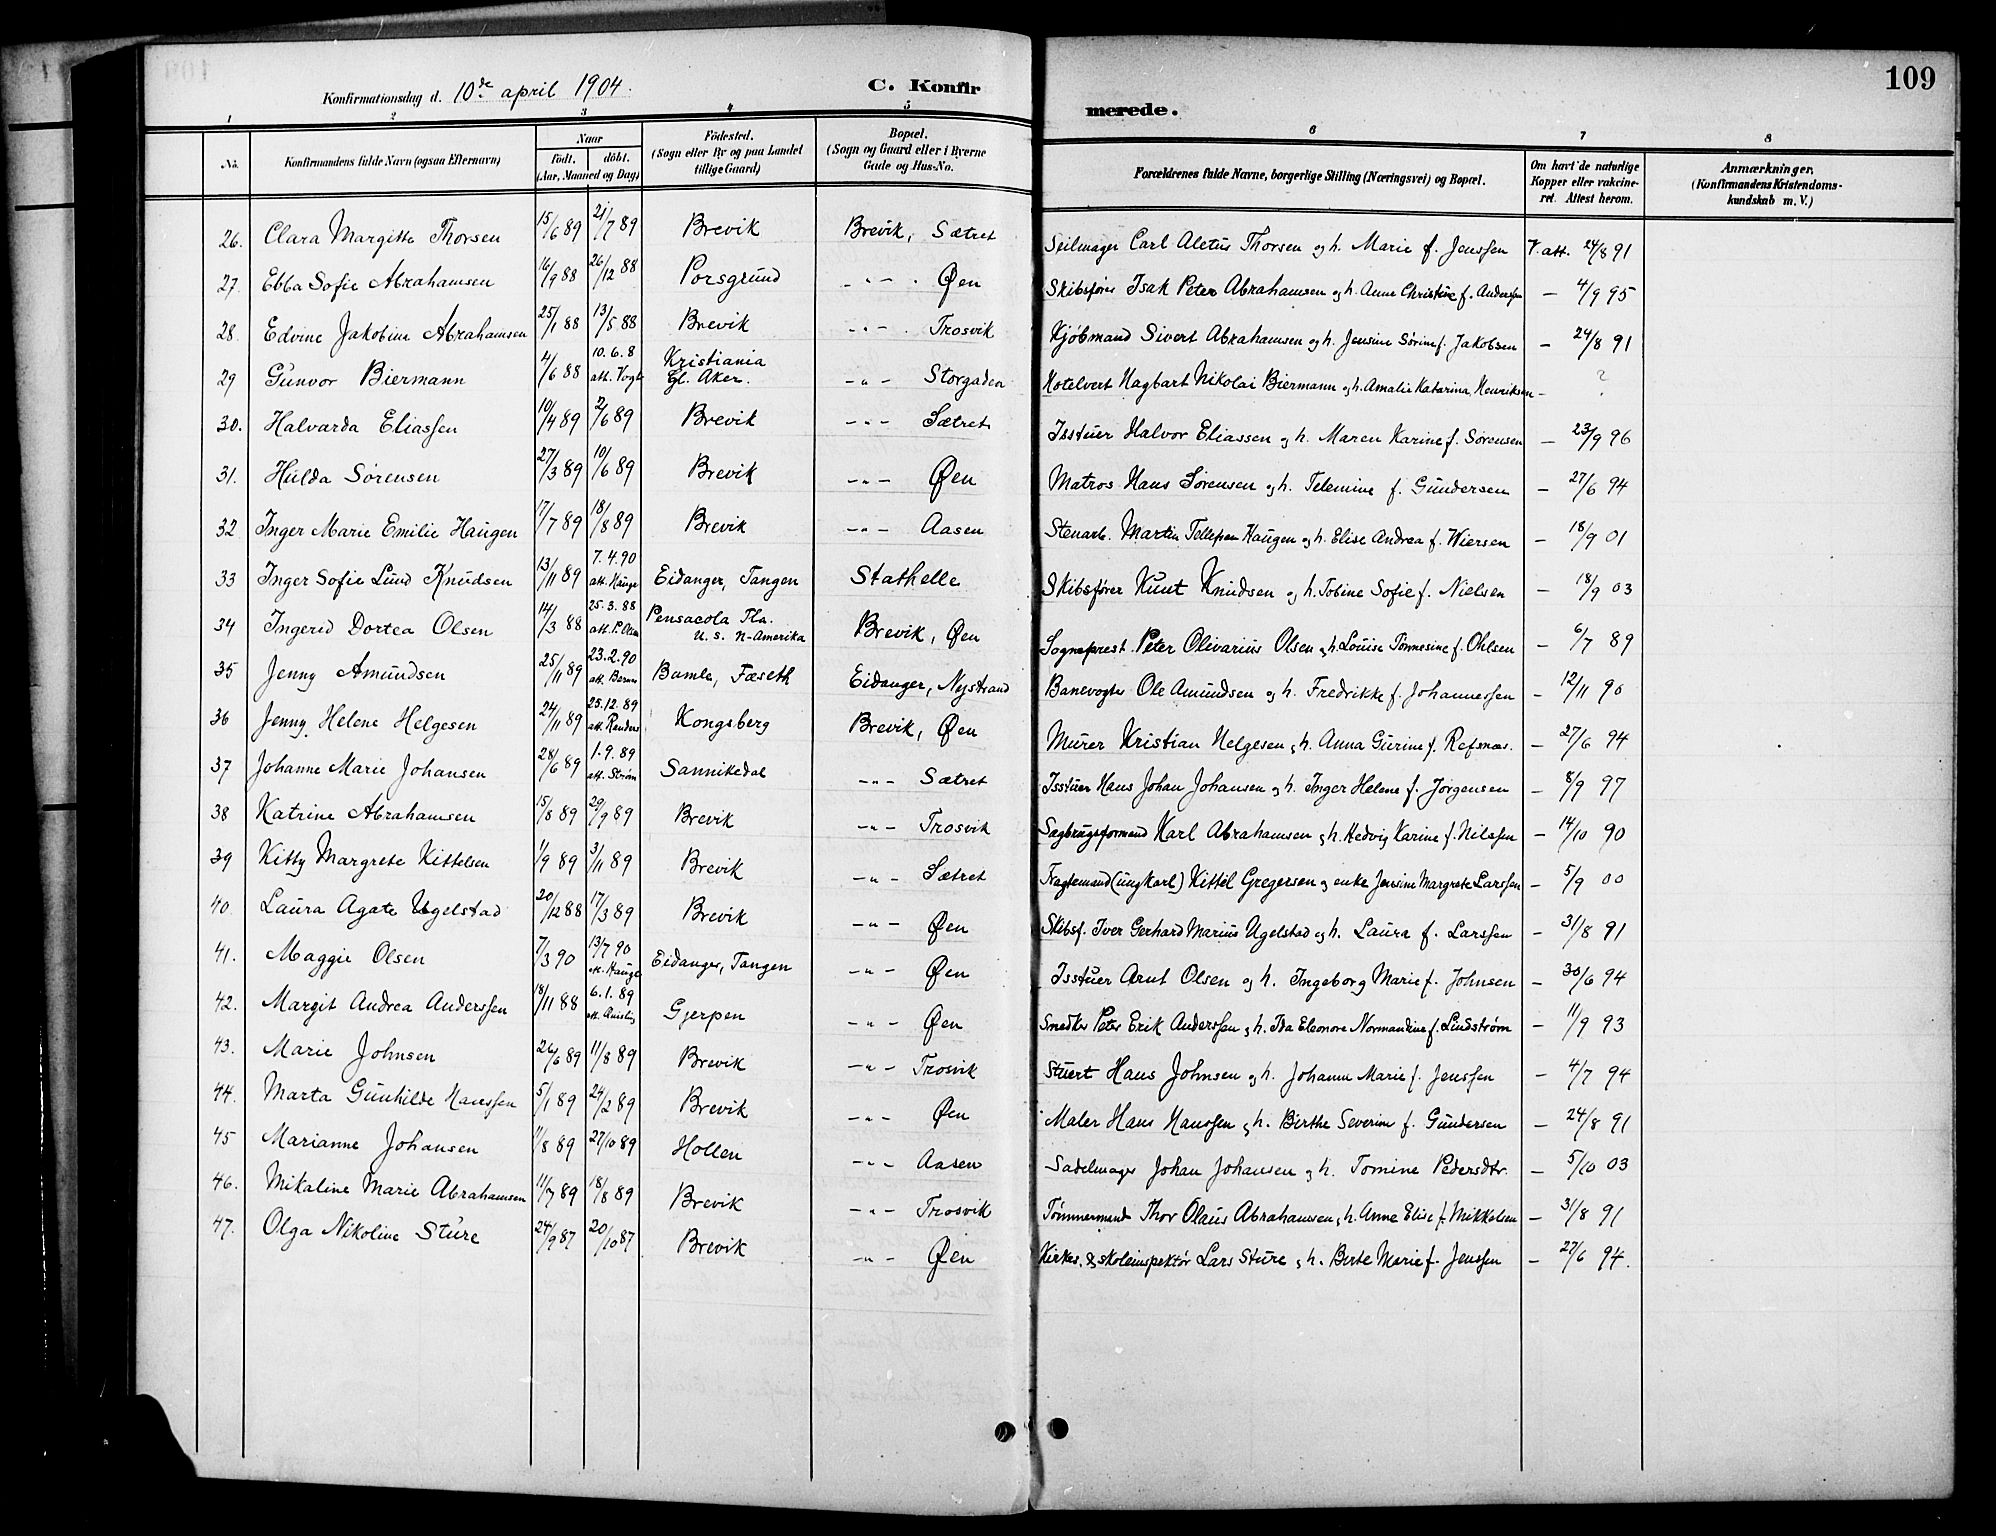 109
Konfirmationsdag d. 10de april 1904.
C. Konfir
merede.
1 2 3 4 5 6 7 8
No.
Konfirmandens fulde Navn (ogsaa Efternavn)
Naar
født. döbt.
(Aar, Maaned og Dag)
Födested.
(Sogn eller By og paa Landet
tillige Gaard)
Bopæl.
(Sogn og Gaard eller i Byerne
Gade og Hus-No.
Forældrenes fulde Navne, borgerlige Stilling (Næringsvei) og Bopæl.
Om havt de naturlige
Kopper eller vakcine-
ret. Attest herom.
Anmærkninger.
(Konfirmandens Kristendoms-
kundskab m. V.)
26. Clara Margitte Thorsen 15/6 89 21/7 89 Brevik Brevik, Sætret Seilmager Carl Aletus Thorsen og h. Marie f. Jenssen V. att. 24/8 91
27. Ebba Sofie Abrahamsen 16/9 88 26/12 88 Porsgrund -"- Øen Skibsfører Isak Peter Abrahamsen og h. Anne Christine f. Anderssen - 4/9 95
28. Edvine Jakobine Abrahamsen 25/1 88 13/5 88 Brevik -"- Trosvik Kjøbmand Sivert Abrahamsen og h. Jensine Sørine f. Jakobsen - 24/8 91
29 Gunvor Biermann 4/6 88 10.6.8 att. Vogt Kristiania Gl. Aker. -"- Storgaden Hotelvert Hagbart Nikolai Biermann og h. Amalie Katarina Henriksen - ?
30. Halvarda Eliassen 10/4 89 2/6 89 Brevik -"- Sætret Isstuer Halvor Eliassen og h. Maren Karine f. Sørensen - 23/9 96
31. Hulda Sørensen 27/3 89 10/6 89 Brevik -"- Øen Matros Hans Sørensen og h. Telemine f. Gundersen - 27/6 94
32 Inger Marie Emilie Haugen 17/7 89 18/8 89 Brevik -"- Aasen Stenarb. Martin Tellefsen Haugen og h. Elise Andrea f. Wiersen - 18/9 01
33 Inger Sofie Lund Knudsen 13/11 89 7.4.90 att. Hauge Eidanger, Tangen Stathelle Skibsfører Knut Knudsen og h. Tobine Sofie f. Nielsen - 18/9 03
34 Ingerid Dortea Olsen 14/3 88 25.3.88 att. P. Olsen Pensacola Fla. U. S. N-Amerika Brevik, Øen Sogneprest Peter Olivarius Olsen og h. Louise Tønnesine f. Ohlsen - 6/7 89
35 Jenny Amundsen 25/11 89 23.2.90 Bamle, Fæseth Eidanger, Nystrand Banevogter Ole Amundsen og h. Fredrikke f. Johannessen - 12/11 90
36 Jenny Helene Helgesen 24/11 89 25.12.89 att. Randers Kongsberg Brevik, Øen Murer Kristian Helgesen og h. Anna Gurine f. Refsnæs. - 27/6 94
37 Johanne Marie Johansen 28/6 89 1.9.89 att. Strøm Sannikedal -"- Sætret Isstuer Hans Johan Johansen og h. Inger Helene f. Jørgensen - 8/9 97
38 Katrine Abrahamsen 15/8 89 29/9 89 Brevik -"- Trosvik Sagbrugsformand Karl Abrahamsen og h. Hedvig Karine f. Nilssen - 14/10 90
39 Kitty Margrete Kittelsen 1/9 89 3/11 89 Brevik -"- Sætret Fragtemand (ungkarl) Kittel Gregersen og enke Jensine Margrete Larssen - 5/9 00
40. Laura Agate Ugelstad 20/12 88 17/3 89 Brevik -"- Øen Skibsf. Iver Gerhard Marius Ugelstad og h. Laura f. Larssen - 31/8 91
41. Maggie Olsen 7/3 90 13/7 90 att. Hauge Eidanger, Tangen -"- Øen Isstuer Arnt Olsen og h. Ingeborg Marie f. Johnsen - 30/6 94
42. Margit Andrea Anderssen 18/11 88 6.1.89 att. Quisling Gjerpen -"- Øen Smedker Peter Erik Anderssen og h. Ida Eleonore Normandine f. Lindstrøm - 11/9 93
43. Marie Johnsen 26/6 89 11/8 89 Brevik -"- Trosvik Stuert Hans Johnsen og h. Johanne Marie f. Jenssen - 4/7 94
44. Marta Gunhilde Hanssen 5/1 89 24/2 89 Brevik -"- Øen Maler Hans Hanssen og h. Birthe Severine f. Gundersen - 24/8 91
45 Marianne Johansen 11/8 89 27/10 89 Hollen -"- Aasen Sadelmager Johan Johansen og h. Tomine Pedersdtr. - 5/10 03
46. Mikaline Marie Abrahamsen 11/7 89 18/8 89 Brevik -"- Trosvik Tømmermand Thor Olaus Abrahamsen og h. Anne Elise f. Mikkelsen - 31/8 91
47. Olga Nikoline Sture 24/9 87 20/10 87 Brevik -"- Øen Kirkes. & skoleinspektør Lars Sture og h. Berte Marie f. Jenssen - 27/6 94.